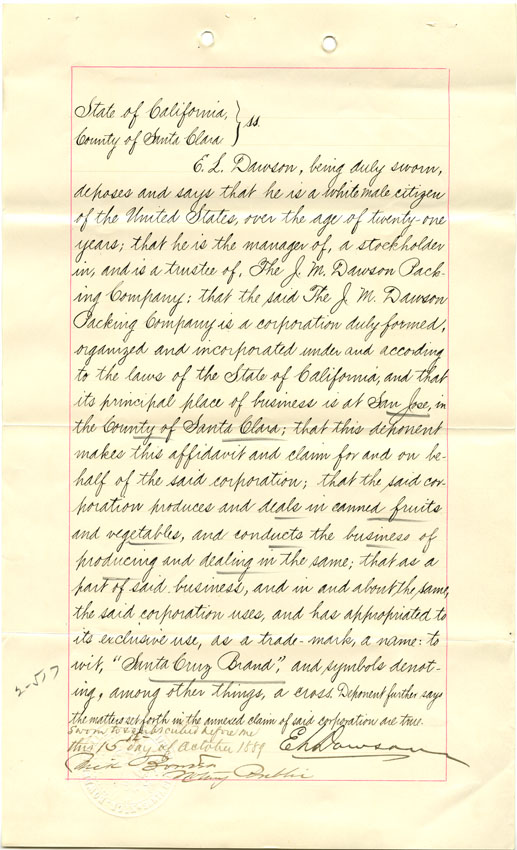 State of California,
County of Santa Clara } ss.
E. L. Dawson, being duly sworn,
deposes and says that he is a white male citizen
of the United States, over the age of twenty-one
years; that he is the manager of, a stockholder
in, and is a trustee of, The J. M. Dawson Pack-
ing Company; that the said The J. M. Dawson
Packing Company is a corporation duly formed,
organized and incorporated under and according
to the laws of the State of California, and that
its principal place of business is at San Jose, in
the County of Santa Clara; that this deponent
makes this affidavit and claim for and on be-
half of the said corporation; that the said cor-
poration produces and deals in canned fruits
and vegetables, and conducts the business of
producing and dealing in the same; that as a
part of said business, and in and about the same,
the said corporation uses, and has appropriated to
its exclusive use, as a trade-mark, a name: to
wit, "Santa Cruz Brand", and symbols denot-
ing, among other things, a cross. Deponent further says
the matters set forth in the annexed claim of said corporation are true.
Sworn to & subscribed before me
this 15th day of October 1889
E L Dawson
Notary Public
2-517